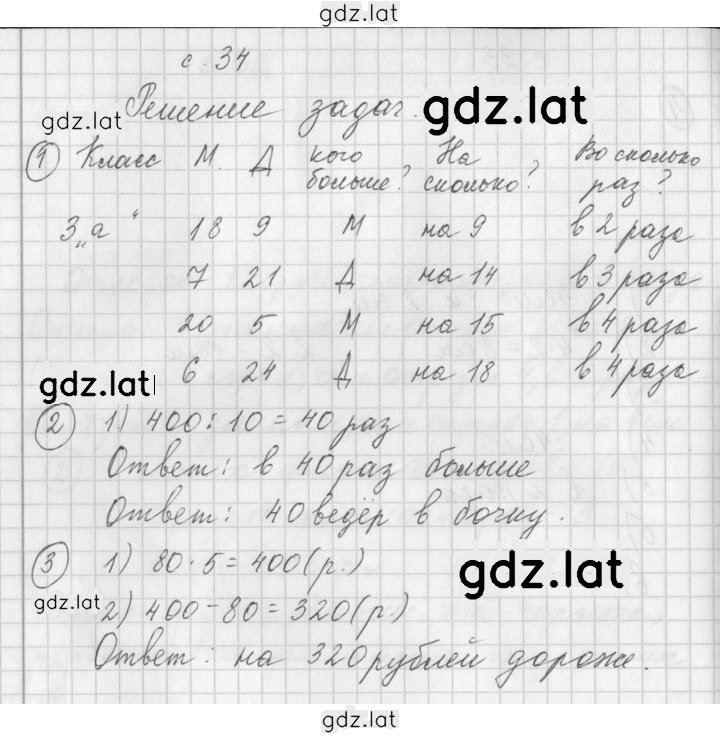 gdz.lat
с. 34
Решение задач.
gdz.lat
gdz.lat
1 Класс М. Д кого больше? На сколько? Во сколько раз?
3 „а“ 18 9 М на 9 в 2 раза
7 21 Д на 14 в 3 раза
20 5 М на 15 в 4 раза
6 24 Д на 18 в 4 раза
gdz.lat
2 1) 400 : 10 = 40 раз
Ответ: в 40 раз больше
Ответ: 40 ведёр в бочку.
3 1) 80 · 5 = 400 (р.)
gdz.lat
gdz.lat
2) 400 - 80 = 320 (р.)
Ответ: на 320 рублей дороже.
gdz.lat